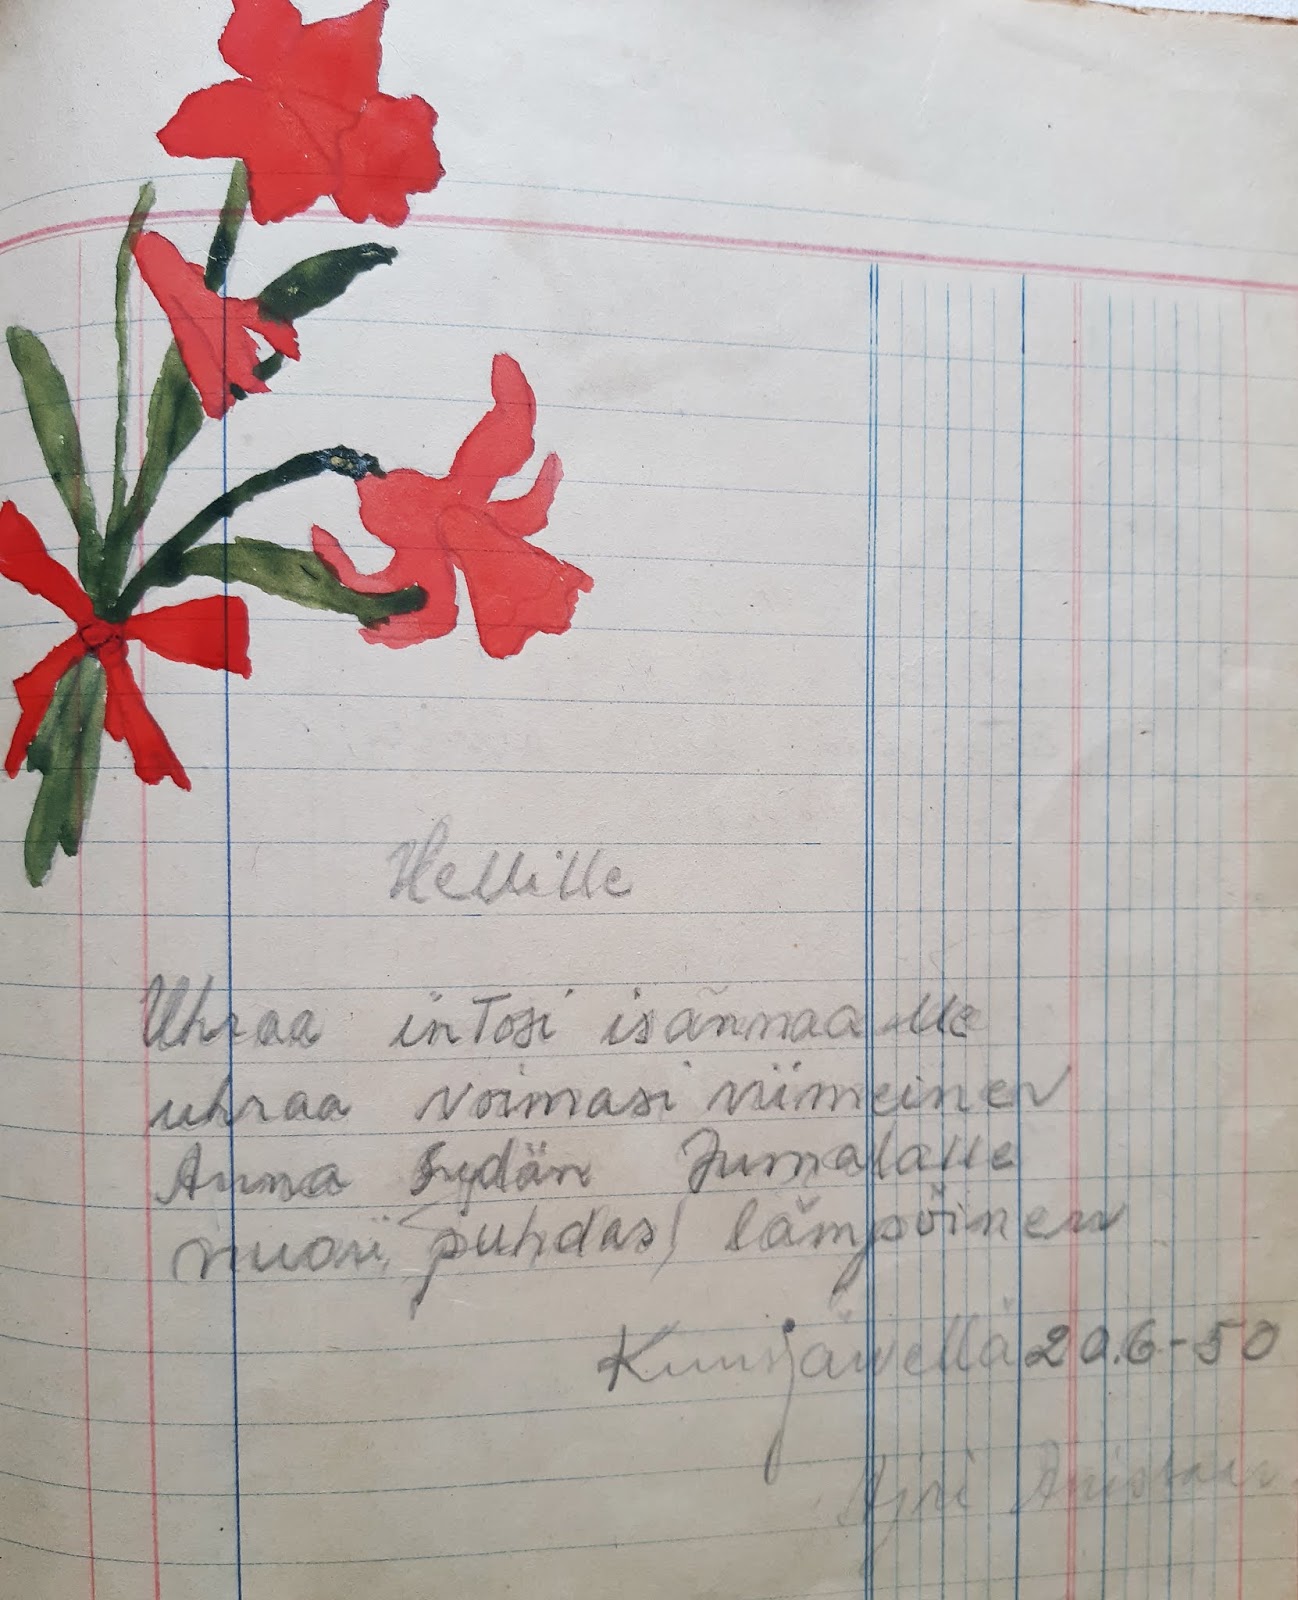 Hellille
Uhraa intosi isänmaalle
uhraa voimasi viimeinen
Anna Sydän Jumalalle
nuori, puhdas, lämpöinen
20.6-50